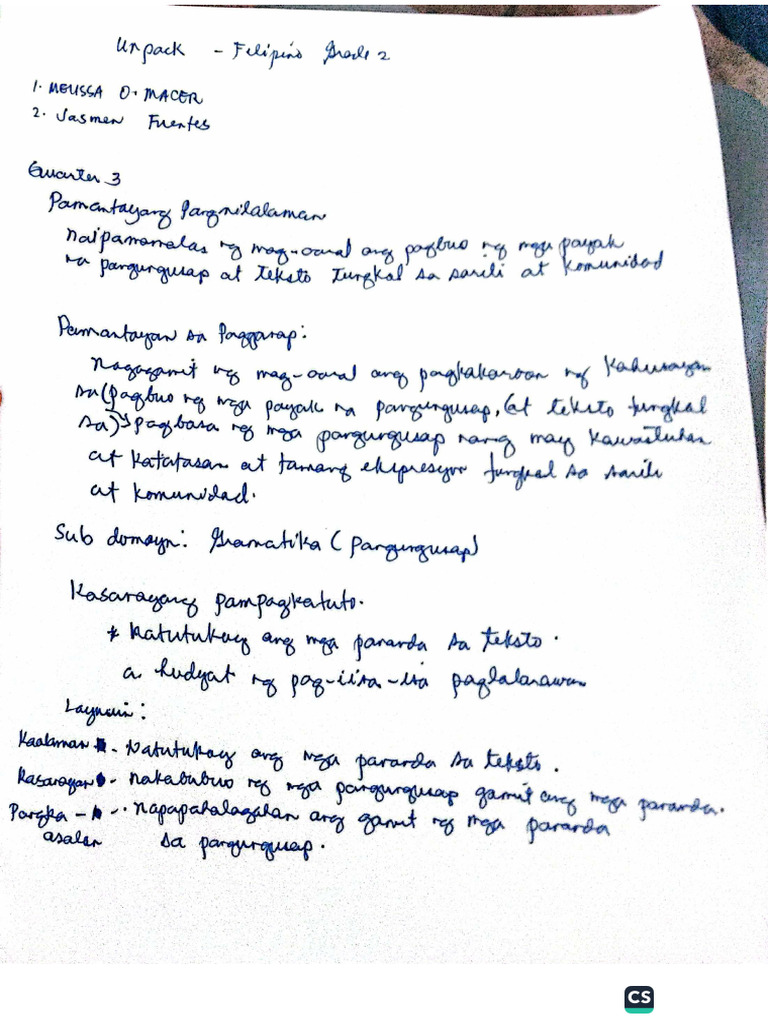 Unpack - Filipino Grade 2
1. MELISSA O. MACER
2. Jasmen Fuentes
Quarter 3
Pamantayang Pangnilalaman
Naipamamalas ng mag-aaral ang pagbuo ng mga payak
na pangungusap at teksto tungkal sa sarili at komunidad
Pamantayan sa Pagganap:
Nagagamit ng mag-aaral ang pagkakaroon ng kahusayan
sa (pagbuo ng mga payak na pangungusap, (at teksto tungkal
sa) pagbasa ng mga pangungusap nang may kawastuhan
at katatasan at tamang ekspresyon tungkal sa sarili
at komunidad.
Sub domayn: Gramatika (Pangungusap)
Kasanayang pampagkatuto.
* Natutukoy ang mga pananda sa teksto.
a. hudyat ng pag-iisa-isa paglalarawan
Layunin:
Kaalaman - Natutukoy ang mga pananda sa teksto.
Kasanayan - nakabubuo ng mga pangungusap gamit ang mga pananda.
Pangka - - napapahalagahan ang gamit ng mga pananda
asalan sa pangungusap.
CS